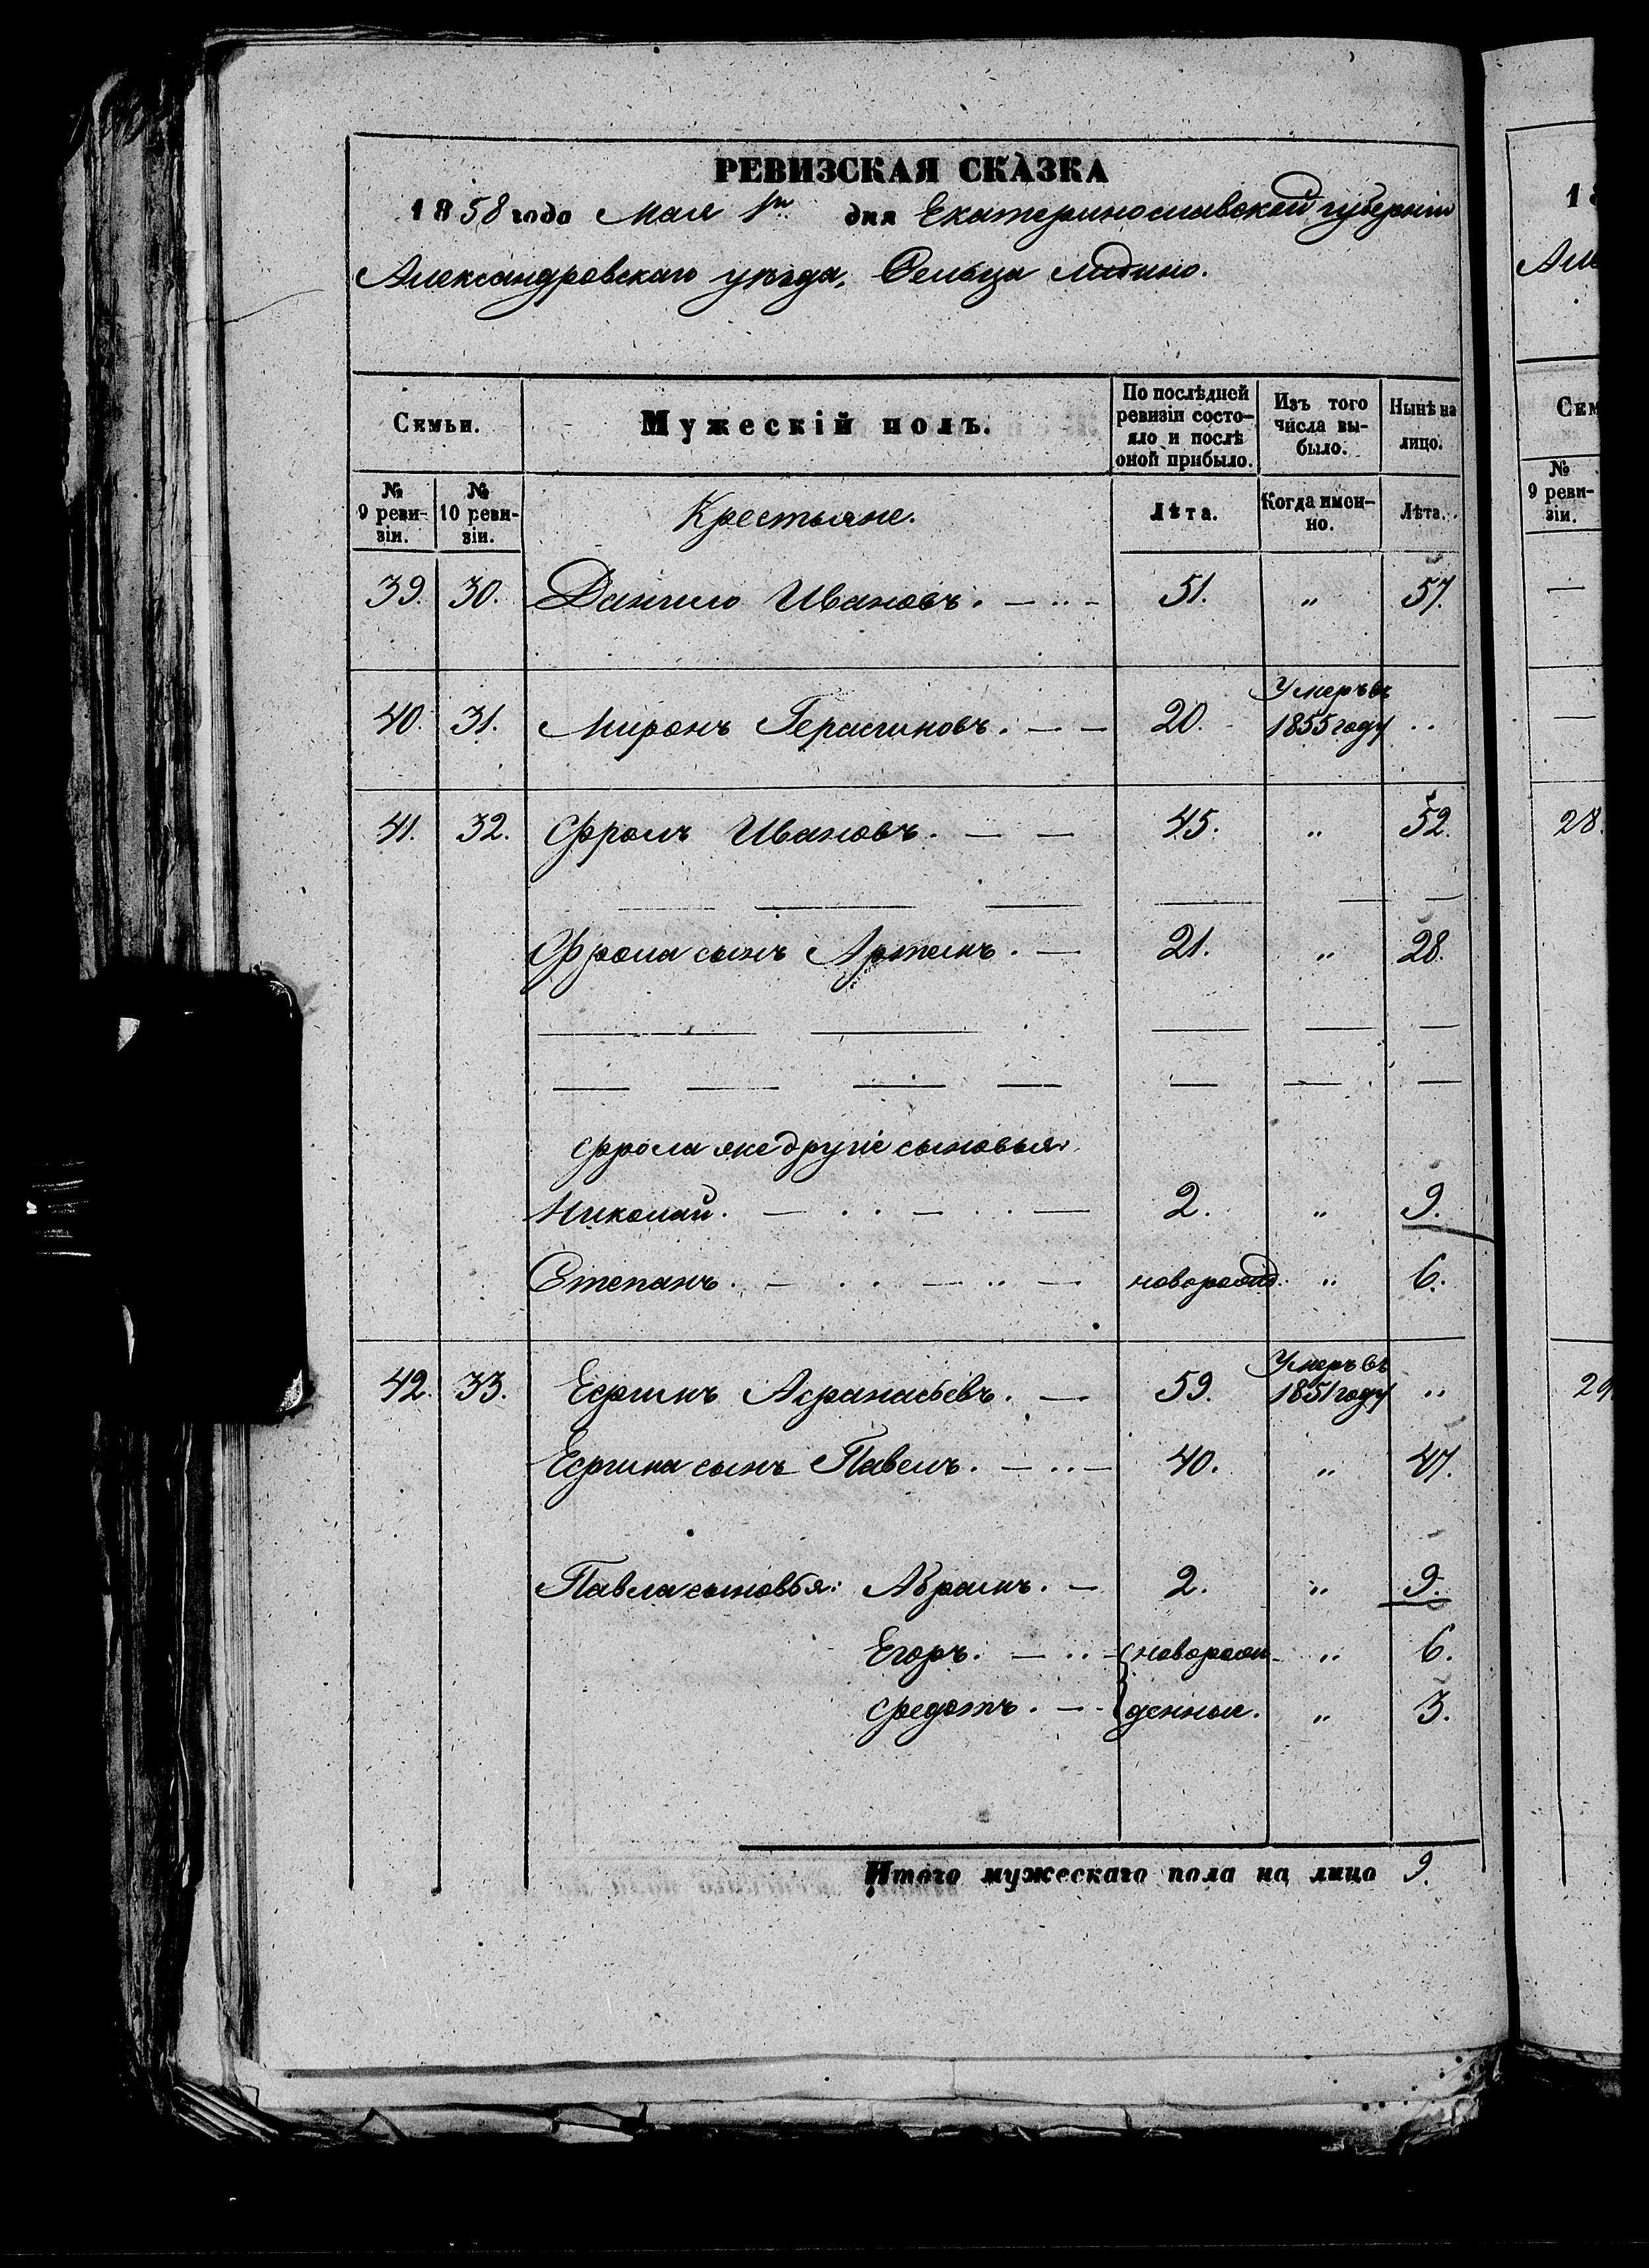 РЕВИЗСКАЯ СКАЗКА
1858 года Мая 1го дня Екатеринославской губерніи
Александровскаго уѣзда, Сельца
Семьи. Мужескій полъ. По послѣдней ревизіи состо- яло и послѣ оной прибыло. Изъ того числа вы- было. Нынѣ на лицо.
№ 9 реви- зіи. № 10 реви- зіи. Крестьяне. Лѣта. Когда имен- но. Лѣта.
39. 30. Данило Ивановъ. 51. " 57.
40. 31. Миронъ Герасимовъ. 20. Умеръ въ 1855 году "
41. 32. Фролъ Ивановъ. 45. " 52.
Фрола сынъ Артемъ. 21. " 28.
Фрола же другіе сыновья
Николай. 2. " 9.
Степанъ. новорожд. " 6.
42. 33. Ефимъ Афанасьевъ. 59. Умеръ въ 1851 году "
Ефима сынъ Павелъ. 40. " 47.
Павла сыновья: Абрамъ. 2. " 9.
Егоръ. новорож- " 6.
Федотъ. денные. " 3.
Итого мужескаго пола на лицо 9.
18
Але
Сем
№ 9 реви- зіи.
28.
29